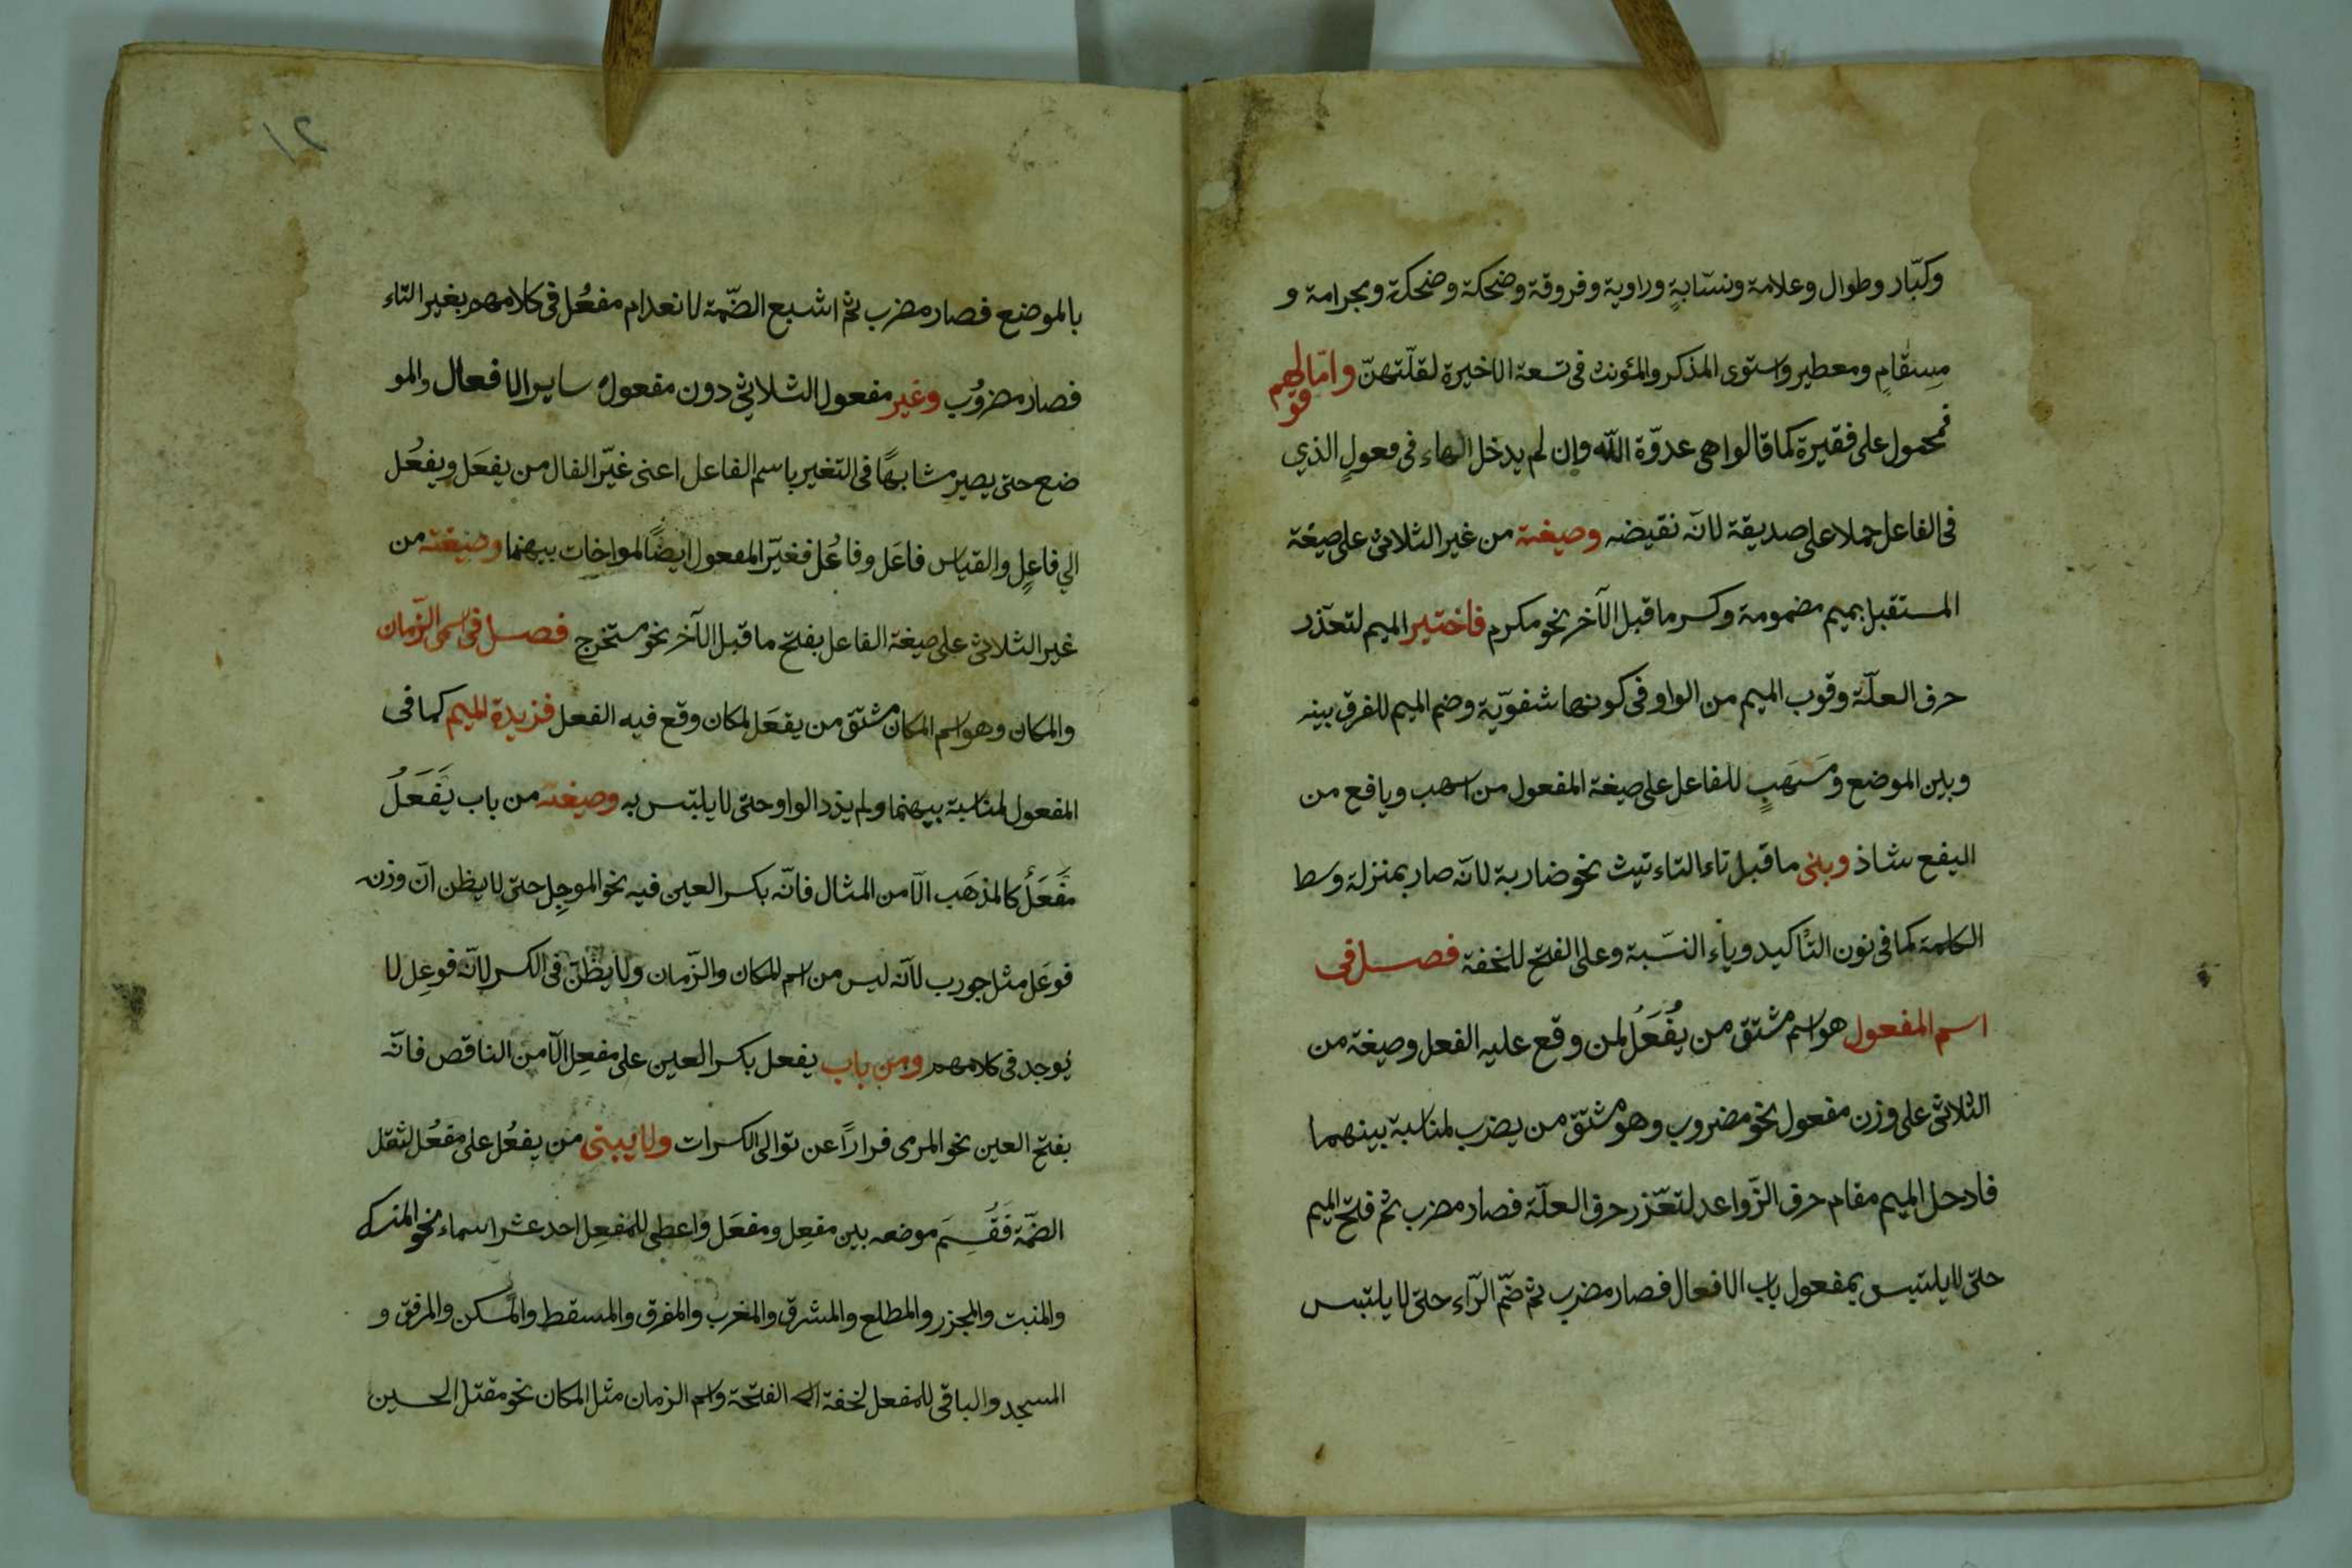 وكبّار وطوال وعلامة ونسّابةٍ وراوية وفروقة وضحكة وضحكة ومجرامة و
مِسقامٍ ومعطير واستوى المذكر والمؤنث فى تسعة الاخيرة لقلّتهنّ وامّا قولهم
فمحمول على فقيرة كما قالوا هى عدوّة اللّه وان لم يدخل الهاء فى فعولٍ الذي
فى الفاعل حملا على صديقة لانّه نقيضه وصيغته من غير الثلاثىّ على صيغة
المستقبل بميم مضمومة وكسر ما قبل الآخر نحو مكرم فاختير الميم لتعذّر
حرف العلّة وقرب الميم من الواو فى كونهما شفويّة وضم الميم للفرق بينه
وبين الموضع ومَسهَبٍ للفاعل على صيغة المفعول من اسهب ويافع من
اليفع شاذ وبنى ما قبل تاء التاءنيث نحو ضاربة لانّه صار بمنزلة وسط
الكلمة كما فى نون التأكيد وياء النسّبة وعلى الفتح للخفة فصل فى
اسم المفعول هو اسم مشتق من يُفْعَلُ لمن وقع عليه الفعل وصيغة من
الثلاثىّ على وزن مفعول نحو مضروب وهو مشتق من يضرب لمناسبة بينهما
فادخل الميم مقام حرف الزّوائد لتعذّر حرف العلّة فصار مضرب ثم فتح الميم
حتى لا يلتبس بمفعول باب الافعال فصار مضرب ثم ضّم الرّاء حتى لا يلتبس
١٢
بالموضع فصار مضرب ثم اشبع الضّمة لانعدام مفعُل فى كلامهم بغير التاء
فصار مضرُوب وغير مفعول الثلاثي دون مفعول ساير الافعال والمو
ضع حتى يصير مشابهًا فى التغير باسم الفاعل اعنى غيّر الفال من يفعَل ويفعُل
الي فاعِلٍ والقياس فاعَل وفاعُل فغيّر المفعول ايضًا لمواخات بينهما وصيغته من
غير الثلاثىّ على صيغة الفاعل بفتح ما قبل الآخر نحو مستخرج فصل فى اسمى الزّمان
والمكان وهو اسم المكان مشتق من يفعَل لمكان وقع فيه الفعل فزيدة الميم كما فى
المفعول لمناسبة بينهما ولم يزد الواو حتى لا يلتبس به وصيغته من باب يَفَعَلُ
مَفعَلٌ كالمذهَب الّا من المثال فانّه بكسر العين فيه نحو الموجِل حتى لا يظن انّ وزنه
فوعَل مثل جورب لانّه ليس من اسم المكان والزّمان ولا يظنّ فى الكسر لانّه فوعِل لا
يُوجد فى كلامهم ومن باب يفعل بكسر العين على مفعِل الّا من الناقص فانّه
بفتح العين نحو المرمى فرارًا عن توالى الكسرات ولا يبنى من يفعُل على مفعُل لثقل
الضمّة فَقُسِمَ موضعه بين مفعِل ومفعَل واعطى للمفعِل احد عشر اسماء نحو المنسك
والمنبت والمجزر والمطلع والمشرق والمغرب والمفرق والمسقط والمسكن والمرفق و
المسجد والباقى للمفعل لخفة الفتحة واسم الزمان مثل المكان نحو مقتل الحسين